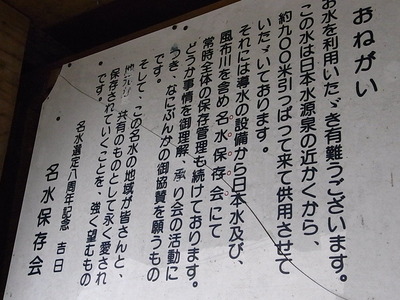 おねがい
お水を利用いたゞき有難うございます。
この水は日本水源泉の近かくから、
約九〇〇米引っぱって来て供用させて
いたゞいております。
それには導水の設備から日本水及び、
風布川を含め名水保存会にて
常時全体の保存管理も続けております。
どうか事情を御理解、承り会の活動に
つき、なにぶんかの御協賛を願うもの
です。
そして、この名水の地域が皆さんと、
共有のものとして永く愛され
保存されていくことを、強く望むもの
です。
名水選定八周年記念 吉日
名水保存会